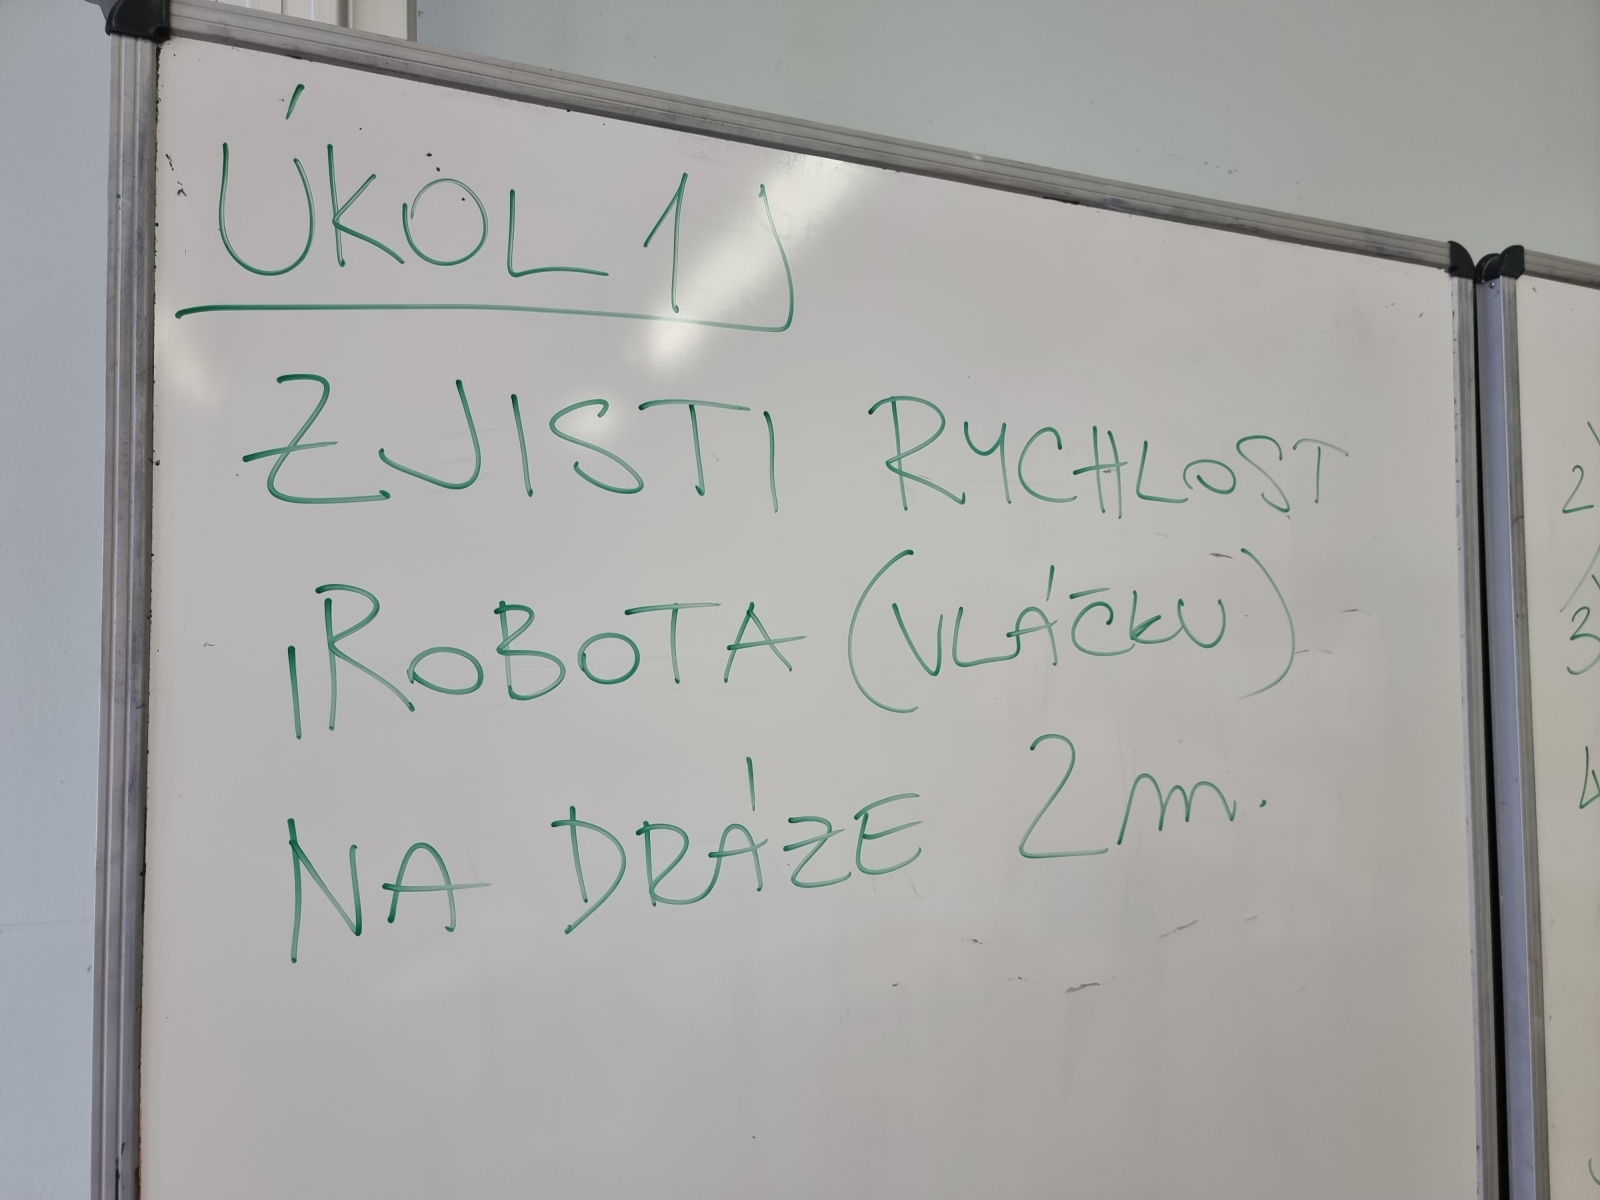 ÚKOL 1
ZJISTI RYCHLOST
ROBOTA (VLÁČKU)
NA DRÁZE 2 m.
2
3
4